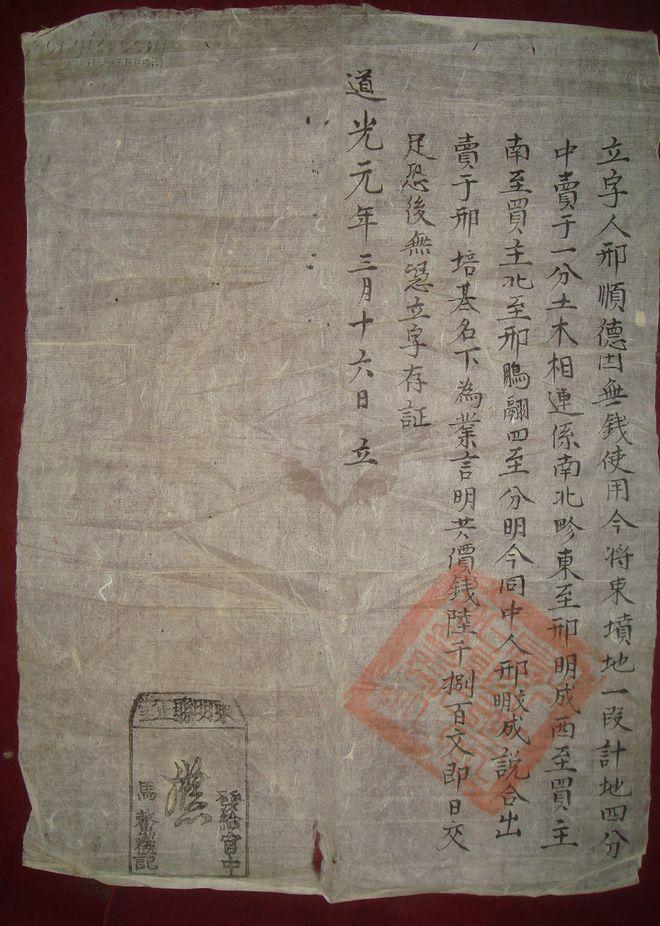 立字人邢順德因無錢使用今将東墳地一段計地四分
中賣于一分土木相連係南北畛東至邢明成西至買主
南至買主北至邢鵬翮四至分明今同中人邢成説合出
賣于邢 培基名下為業言明共價錢陸千捌百文即日交
足恐後無慿立字存証
道光元年三月十六日 立
東明縣正堂
發給官中
馬戳記